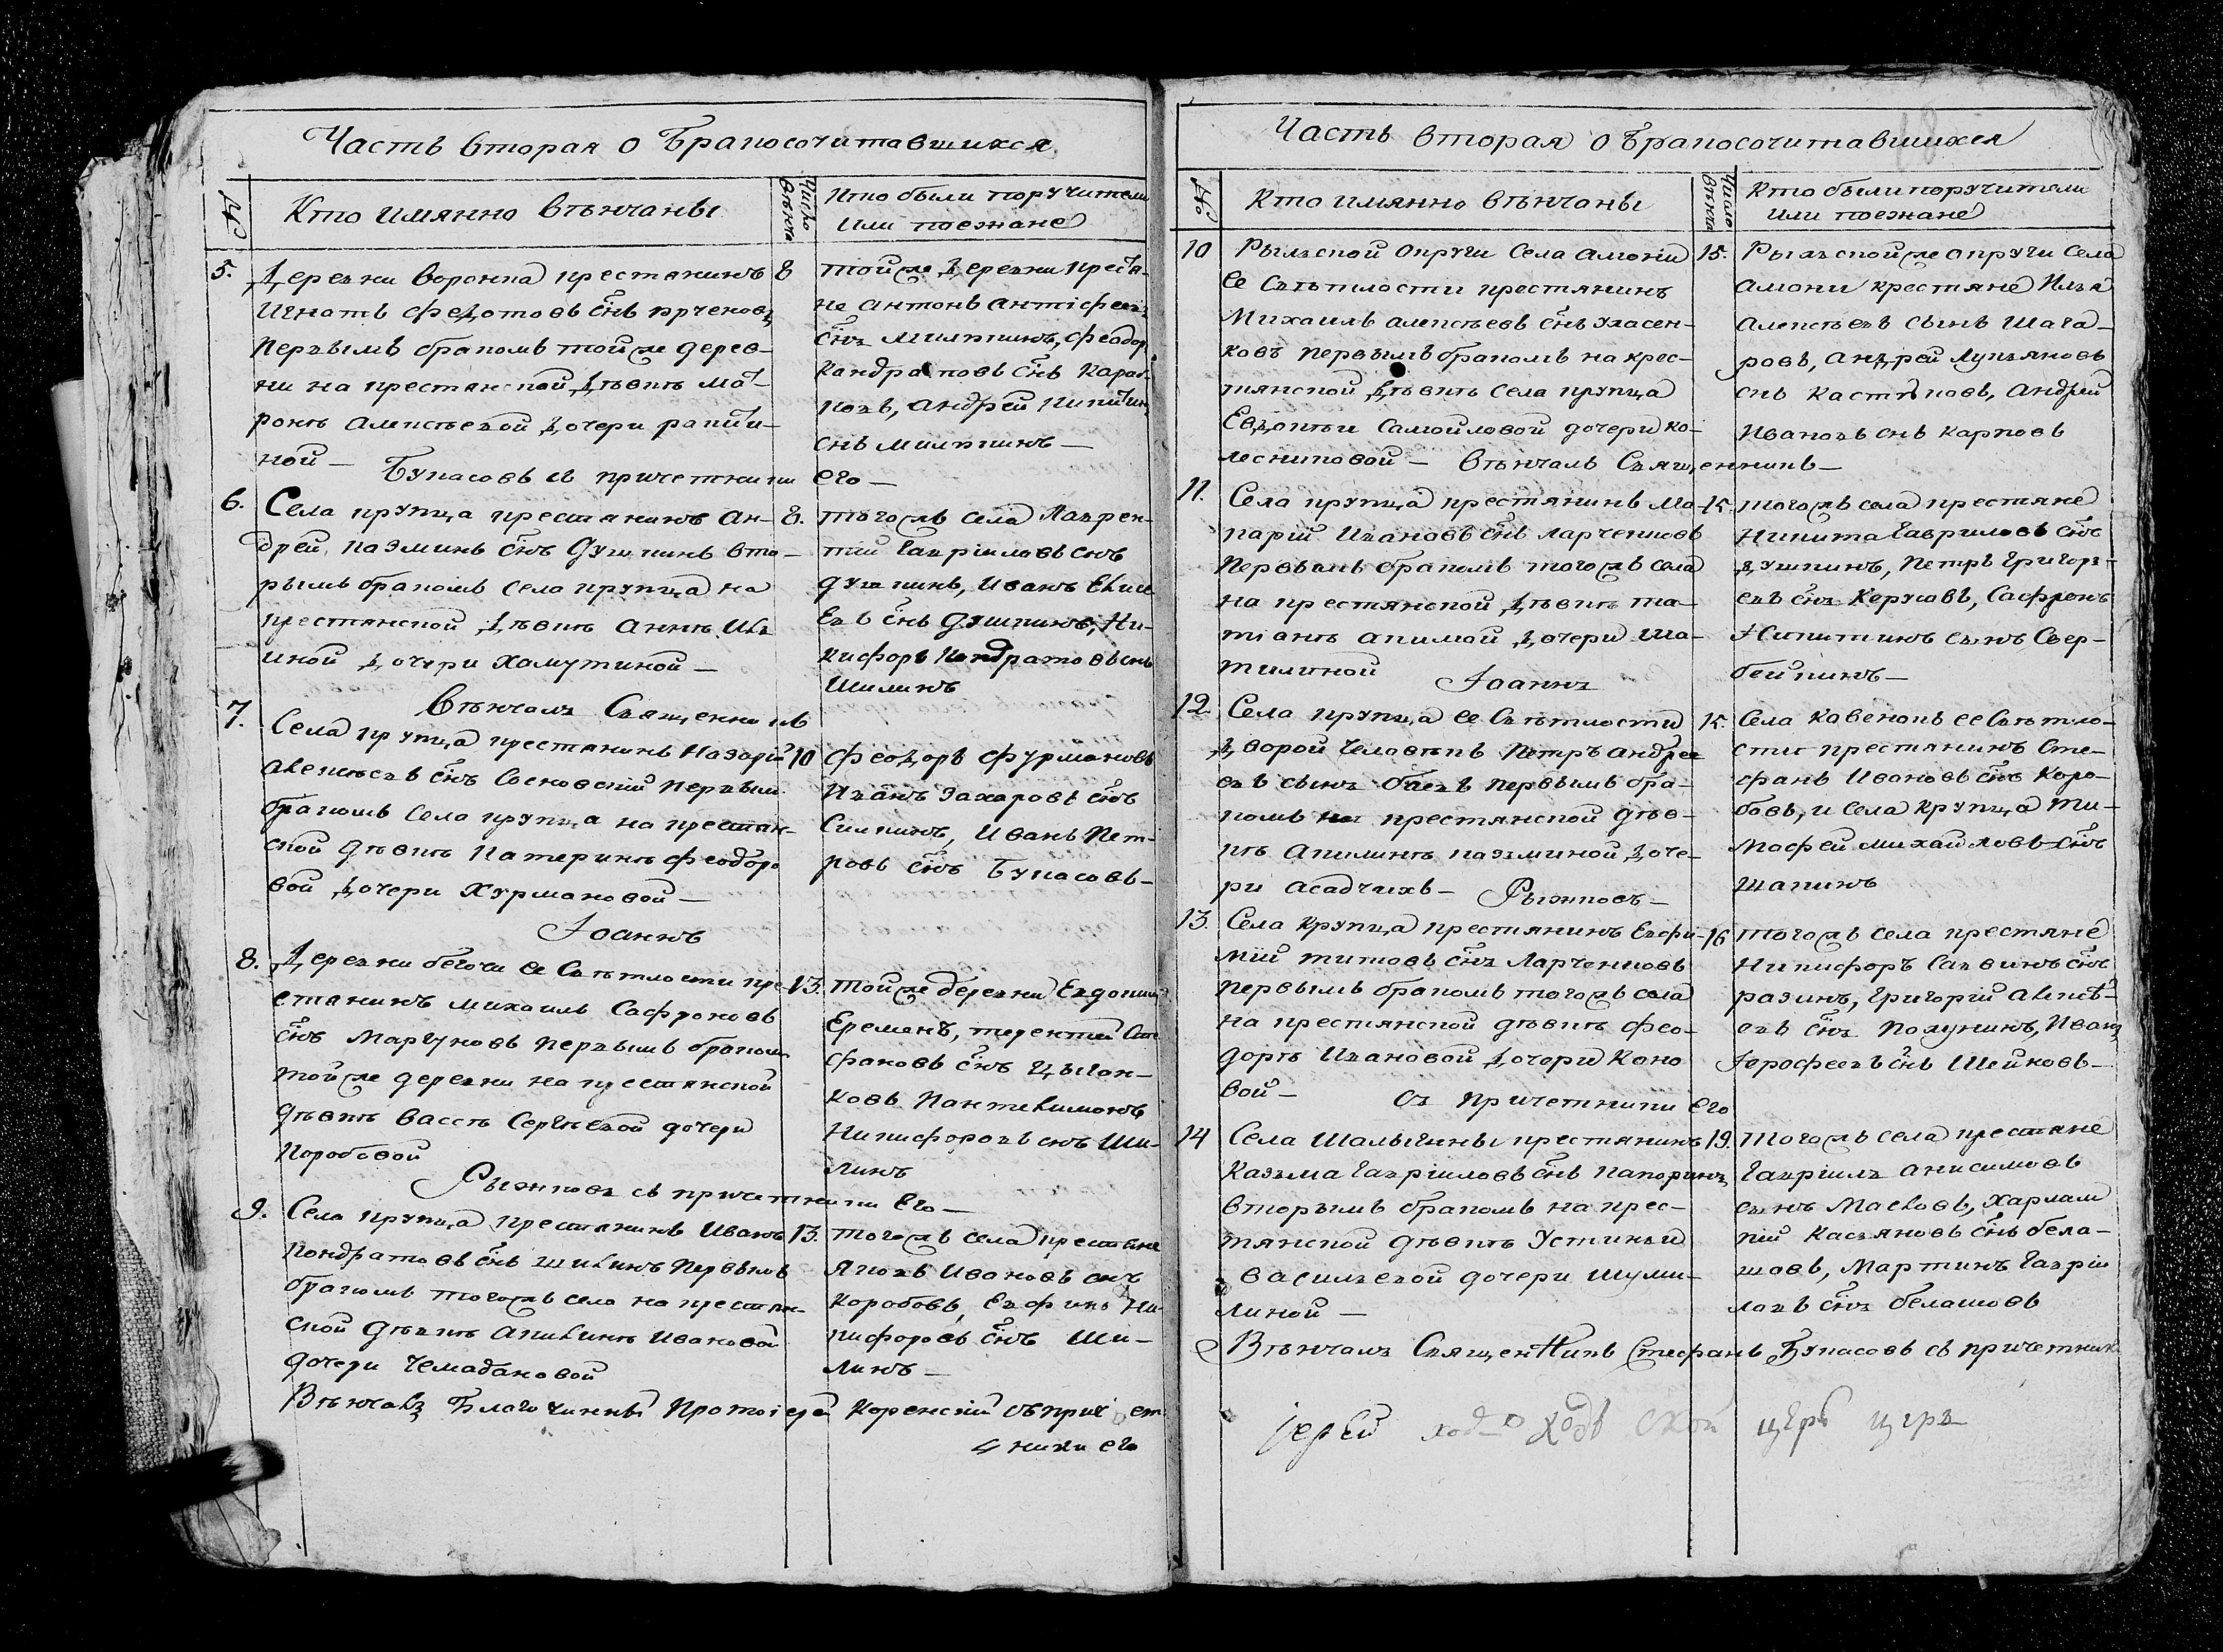 Часть вторая о бракосочитавшихся
№
Кто имянно венчаны
Число венч
Кто были поручители
или поезжане
5.
Деревни Воронка крестьянинъ
Игнатъ Федотовъ снъ
первымъ бракомъ тойже дерев-
ни на крестьянской девкѣ Ма-
ронѣ Алексѣевой дочери
ной —
8
тойже деревни крестья-
не Антонъ Антіфеев
снъ Милкинъ, Феодор
Кандратовъ снъ Карав-
ковъ, Андрей Никитин
снъ Милкинъ —
Букасовъ съ причетники его —
6.
Села Крупца крестьянинъ Ан-
дрей Казминъ снъ Душкинъ вто-
рымъ бракомъ села Крупца на
крестьянской дѣвкѣ Аннѣ Иль
иной дочери Хомутиной —
8.
тогожъ села Лаврен-
тій Гавріиловъ снъ
Душкинъ, Иванъ Елисе
евъ снъ Душкинъ, Ни-
кифоръ Кондратовъ снъ
Шилинъ
Вѣнчалъ Священникъ
7.
Села Крупца крестьянинъ Назарій
Алексѣевъ снъ Сосновскій первым
бракомъ села Крупца на крестьян-
ской дѣвкѣ Катеринѣ Феодоро
вой дочери Хурмановой —
10
Феодоръ Фурмановъ
Иванъ Захаровъ снъ
Силкинъ, Иванъ Пет-
ровъ снъ Букасовъ —
Іоаннъ
8.
Деревни Бегочи ее Свѣтлости кре-
стьянинъ Михаилъ Сафроновъ
снъ Маргуновъ первымъ браком
тойже деревни на крестьянской
дѣвкѣ Вассѣ Сергѣевой дочери
Коробовой
13.
тойже деревни Евдоким
Еременъ, терентій Сте
фановъ снъ Цыган-
ковъ Пантелимонъ
Никифоровъ снъ Ши-
линъ
Рыжковъ съ причетники его —
9.
Села Крупца крестьянинъ Иванъ
Кондратовъ снъ Шилинъ первымъ
бракомъ тогожъ села на крестьян-
ской дѣвкѣ Акилинѣ Ивановой
дочери Чемадановой
13.
тогожъ села крестьяне
Яковъ Ивановъ снъ
Коробовъ, Евфимъ Ни-
кифоровъ снъ Ши-
линъ —
Вѣнчалъ Благочинный Протоіерей Коренскій съ причет
ники его
Часть вторая о бракосочитавшихся
№
Кто имянно вѣнчаны
Число венч
Кто были поручители
или поезжане
10
Рыльской округи Села Амони
Ее Свѣтлости крестьянинъ
Михаилъ Алексѣевъ снъ Уласен-
ковъ первымъ бракомъ на крес-
тянской дѣвкѣ села Крупца
Евдокѣи Самойловой дочери Ко-
лесниковой — Вѣнчалъ Священникъ —
15.
Рыльскойже округи Села
Амони крестьяне Илья
Алексѣевъ сынъ Шага-
ровъ, Андрей Лукьяновъ
снъ Костюковъ, Андрей
Ивановъ снъ Карповъ
11.
Села Крупца крестьянинъ Ма-
карій Ивановъ снъ Ларченковъ
первымъ бракомъ тогожъ села
на крестьянской дѣвкѣ та-
тіанѣ Акимой дочери Ша-
тилиной
15.
тогожъ села крестьяне
Никита Гавриловъ снъ
Душкинъ, Петръ Григорь-
евъ снъ Керусовъ, Сафронъ
Никитинъ сынъ Свер-
бейкинъ —
Іоаннъ
12
Села Крупца ее Свѣтлости
дворой человѣкъ Петръ Андрее
евъ сынъ Баевъ первымъ бра-
комъ на крестьянской дѣв-
кѣ Акилинѣ Казминой доче-
ри Асадчихъ —
15.
Села Кавенокъ ее Свѣтло-
сти крестьянинъ Сте-
фанъ Ивановъ снъ Коро-
бовъ, и села Крупца Ти-
мофей Михайловъ снъ
Шакинъ
Рыжковъ —
13.
Села Крупца крестьянинъ Евфи-
мій Титовъ снъ Ларченковъ
первымъ бракомъ тогожъ села
на крестьянской дѣвкѣ Фео-
дорѣ Ивановой дочери Коно
вой —
16
тогожъ села крестьяне
Никифоръ Саввинъ снъ
Разинъ, Григорій Алексѣ-
евъ снъ Полунинъ, Иван
Іерофеевъ снъ Шейковъ —
съ причетники его
14
Села Шалыгины крестьянинъ
Казьма Гавріиловъ снъ Напоринъ
вторымъ бракомъ на крес-
тянской дѣвкѣ Устиньи
Васильевой дочери Шуми-
линой —
19.
тогожъ села крестьяне
Гавріилъ Анисимовъ
сынъ Масловъ, Харлам
пій Касьяновъ снъ Бела-
шовъ, Мартинъ Гавріи
ловъ снъ Белашовъ
Вѣнчалъ Священникъ Стефанъ Букасовъ съ причетник
іерей